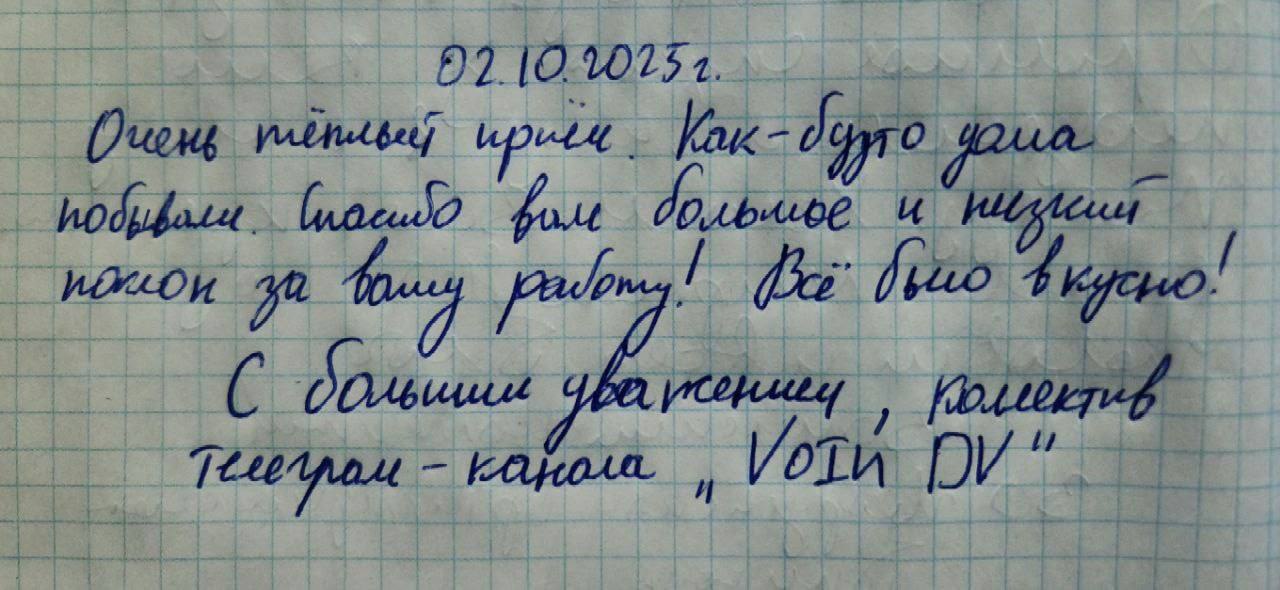 02.10.2025г.
Очень тёплый приём. Как-будто дома
побывали. Спасибо вам большое и низкий
поклон за вашу работу! Всё было вкусно!
С большим уважением, коллектив
телеграм-канала „VOIN DV"